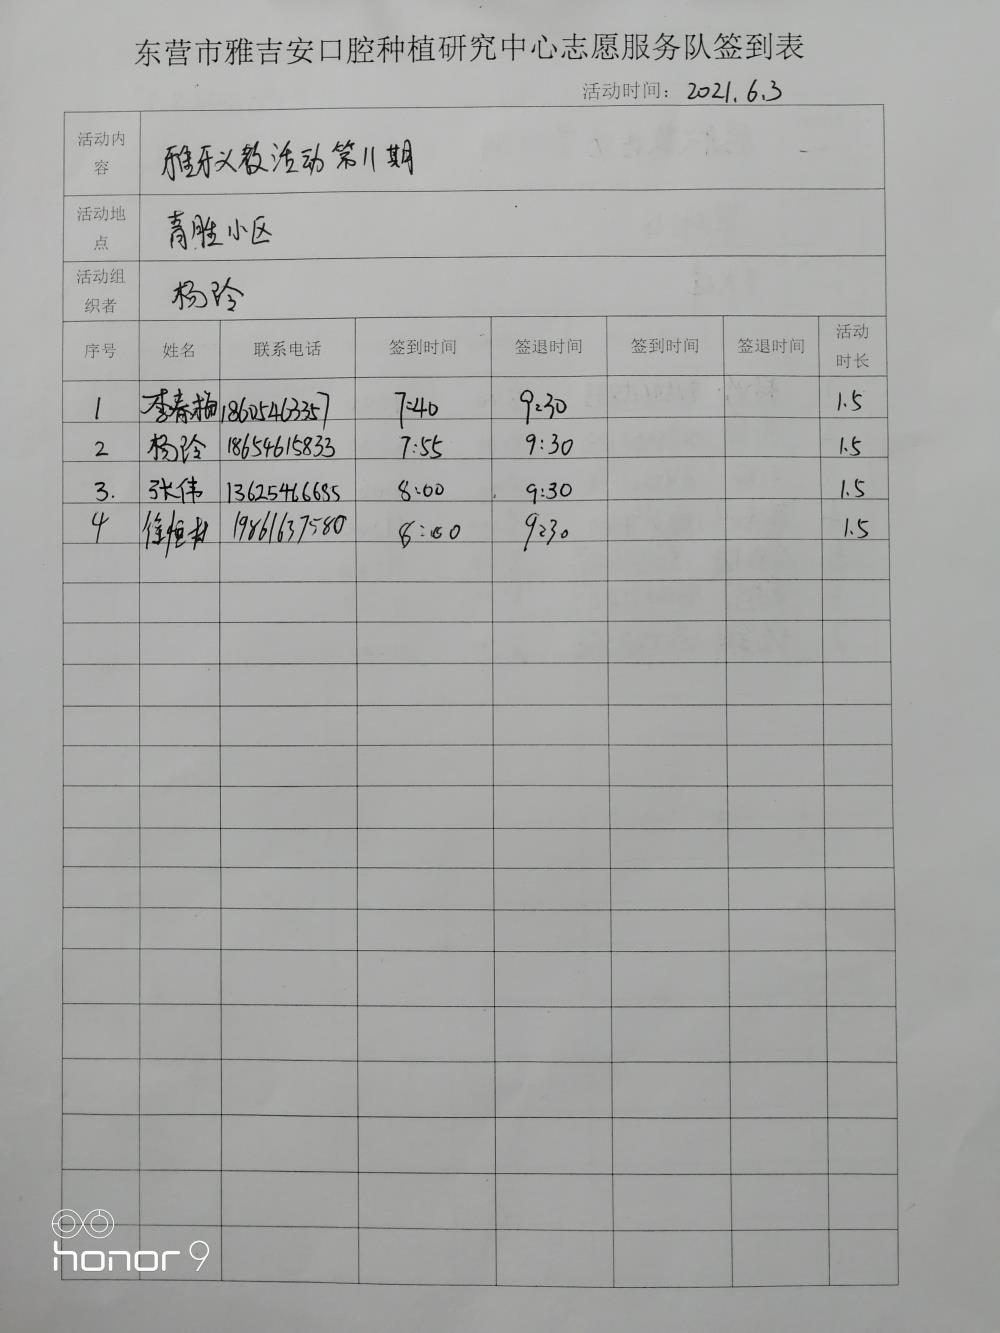 东营市雅吉安口腔种植研究中心志愿服务队签到表
活动时间：2021.6.3
活动内容 雅牙义教活动第11期
活动地点 青胜小区
活动组织者 杨玲
序号 姓名 联系电话 签到时间 签退时间 签到时间 签退时间 活动时长
1 李春梅 18605463357 7:40 9:30 1.5
2 杨玲 18654615833 7:55 9:30 1.5
3. 张伟 13625466685 8:00 9:30 1.5
4 徐恒 19861637580 8:00 9:30 1.5
honor 9